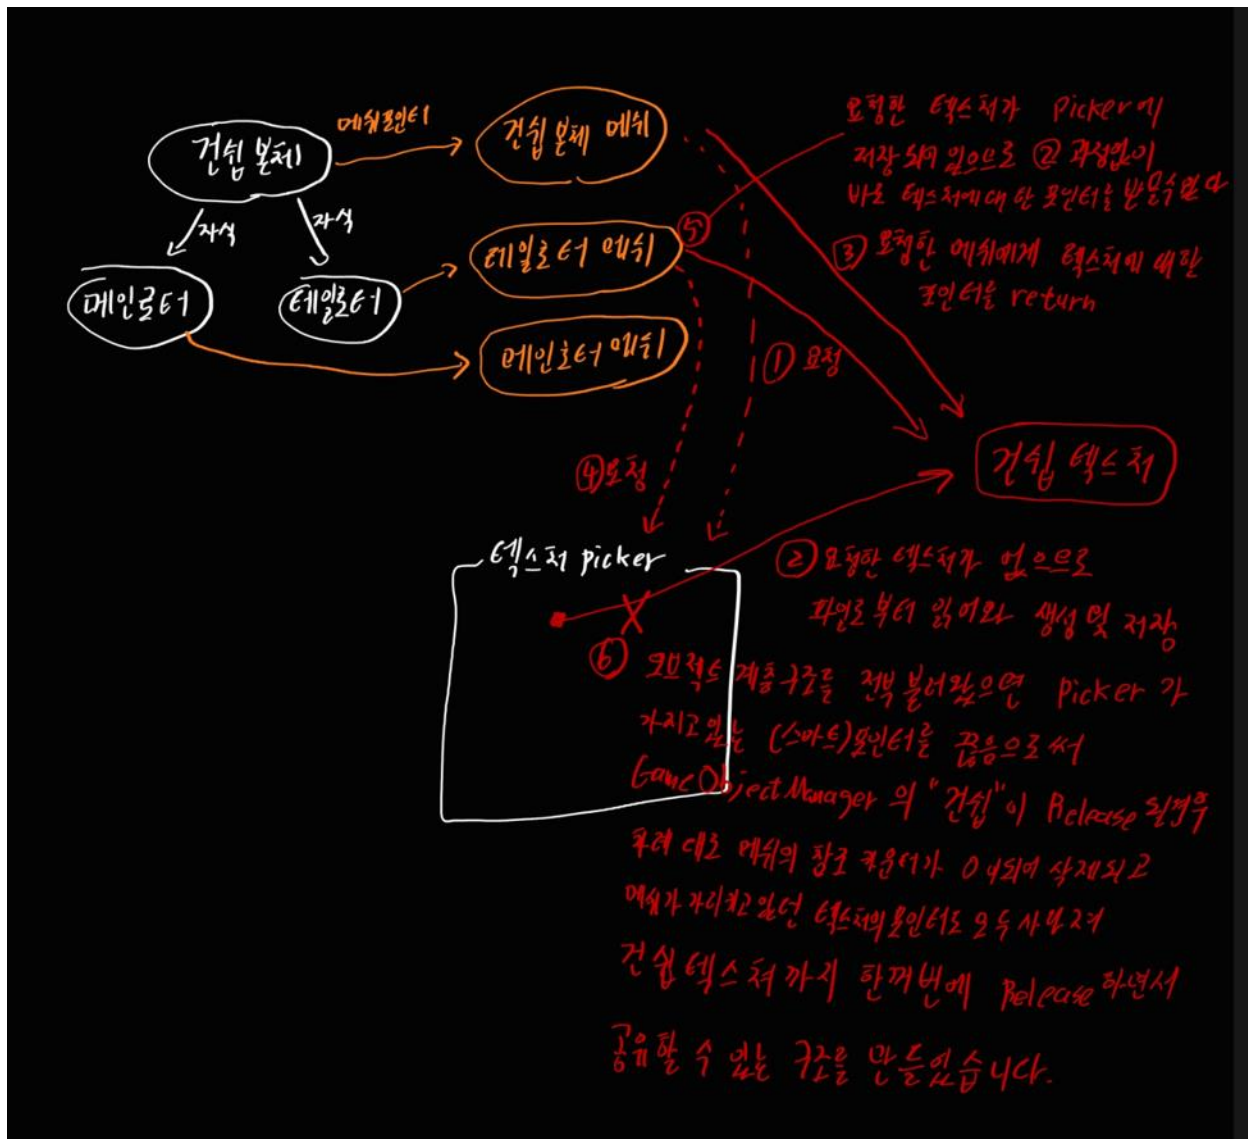 건쉽 본체
메쉬포인터
건쉽 본체 메쉬
자식
자식
메인로터
테일로터
테일로터 메쉬
메인로터 메쉬
요청한 텍스처가 Picker에
저장되어 있으므로 ② 과정없이
바로 텍스처에 대한 포인터를 받을수있다
⑤
③ 요청한 메쉬에게 텍스처에 대한
포인터를 return
① 요청
④ 요청
건쉽 텍스처
텍스처 picker
② 요청한 텍스처가 없으므로
파일로부터 읽어와 생성 및 저장
⑥ 오브젝트 계층구조를 전부 불러왔으면 Picker가
가지고 있는 (스마트)포인터를 끊음으로써
GameObjectManager의 "건쉽"이 Release 될경우
대로 메쉬의 참조 카운터가 0이되어 삭제되고
메쉬가 가리키고 있던 텍스처의 포인터도 모두 사라져
건쉽텍스처까지 한꺼번에 Release하면서
공유할 수 있는 구조를 만들었습니다.